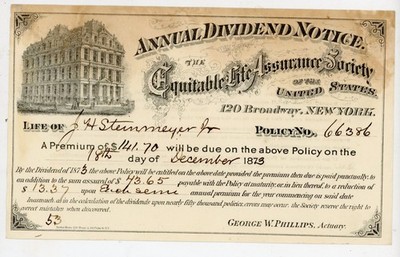 ANNUAL DIVIDEND NOTICE.
THE
Equitable Life Assurance Society
OF THE
UNITED STATES,
120 Broadway, NEW YORK.
LIFE OF J H Steinmeyer Jr POLICY NO. 66386
A Premium of $141.70 will be due on the above Policy on the
18th day of December 1873
By the Dividend of 1873 the above Policy will be entitled on the above date provided the premium then due is paid punctually to
an addition to the sum assured of $43.65 payable with the Policy at maturity, or in lieu thereof, to a reduction of
$13.37 upon Each semi annual premium for the year commencing on said date
Inasmuch as in the calculation of the dividends upon nearly fifty thousand policies, errors may occur, the Society reserve the right to
correct mistakes when discovered.
53
GEORGE W. PHILLIPS, Actuary.